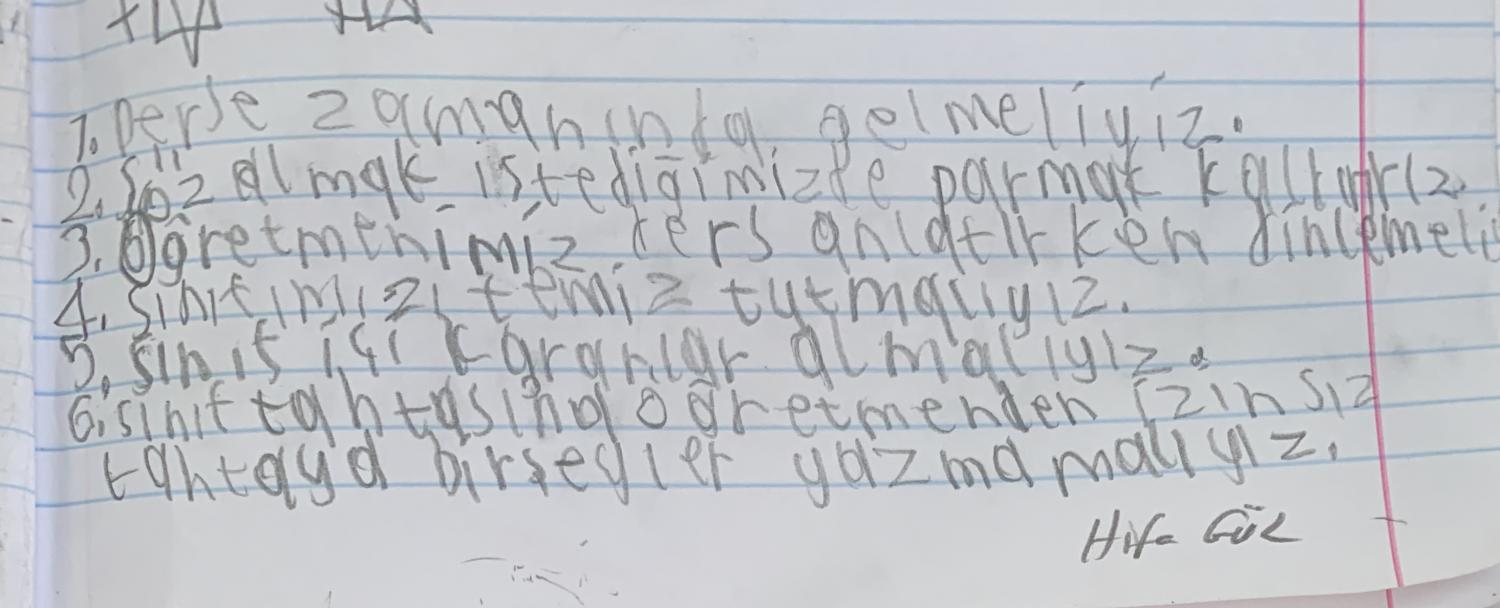 1. Derse zamanında gelmeliyiz.
2. Söz almak istediğimizde parmak kaldırırız.
3. Öğretmenimiz ders anldtırken dinlemeli
4. Sınıfımızı temiz tutmalıyız.
5. Sınıf içi kararlar almalıyız.
6. Sınıf tahtasına öğretmenden izinsiz
tahtaya birşeyler yazmamalıyız.
Gül